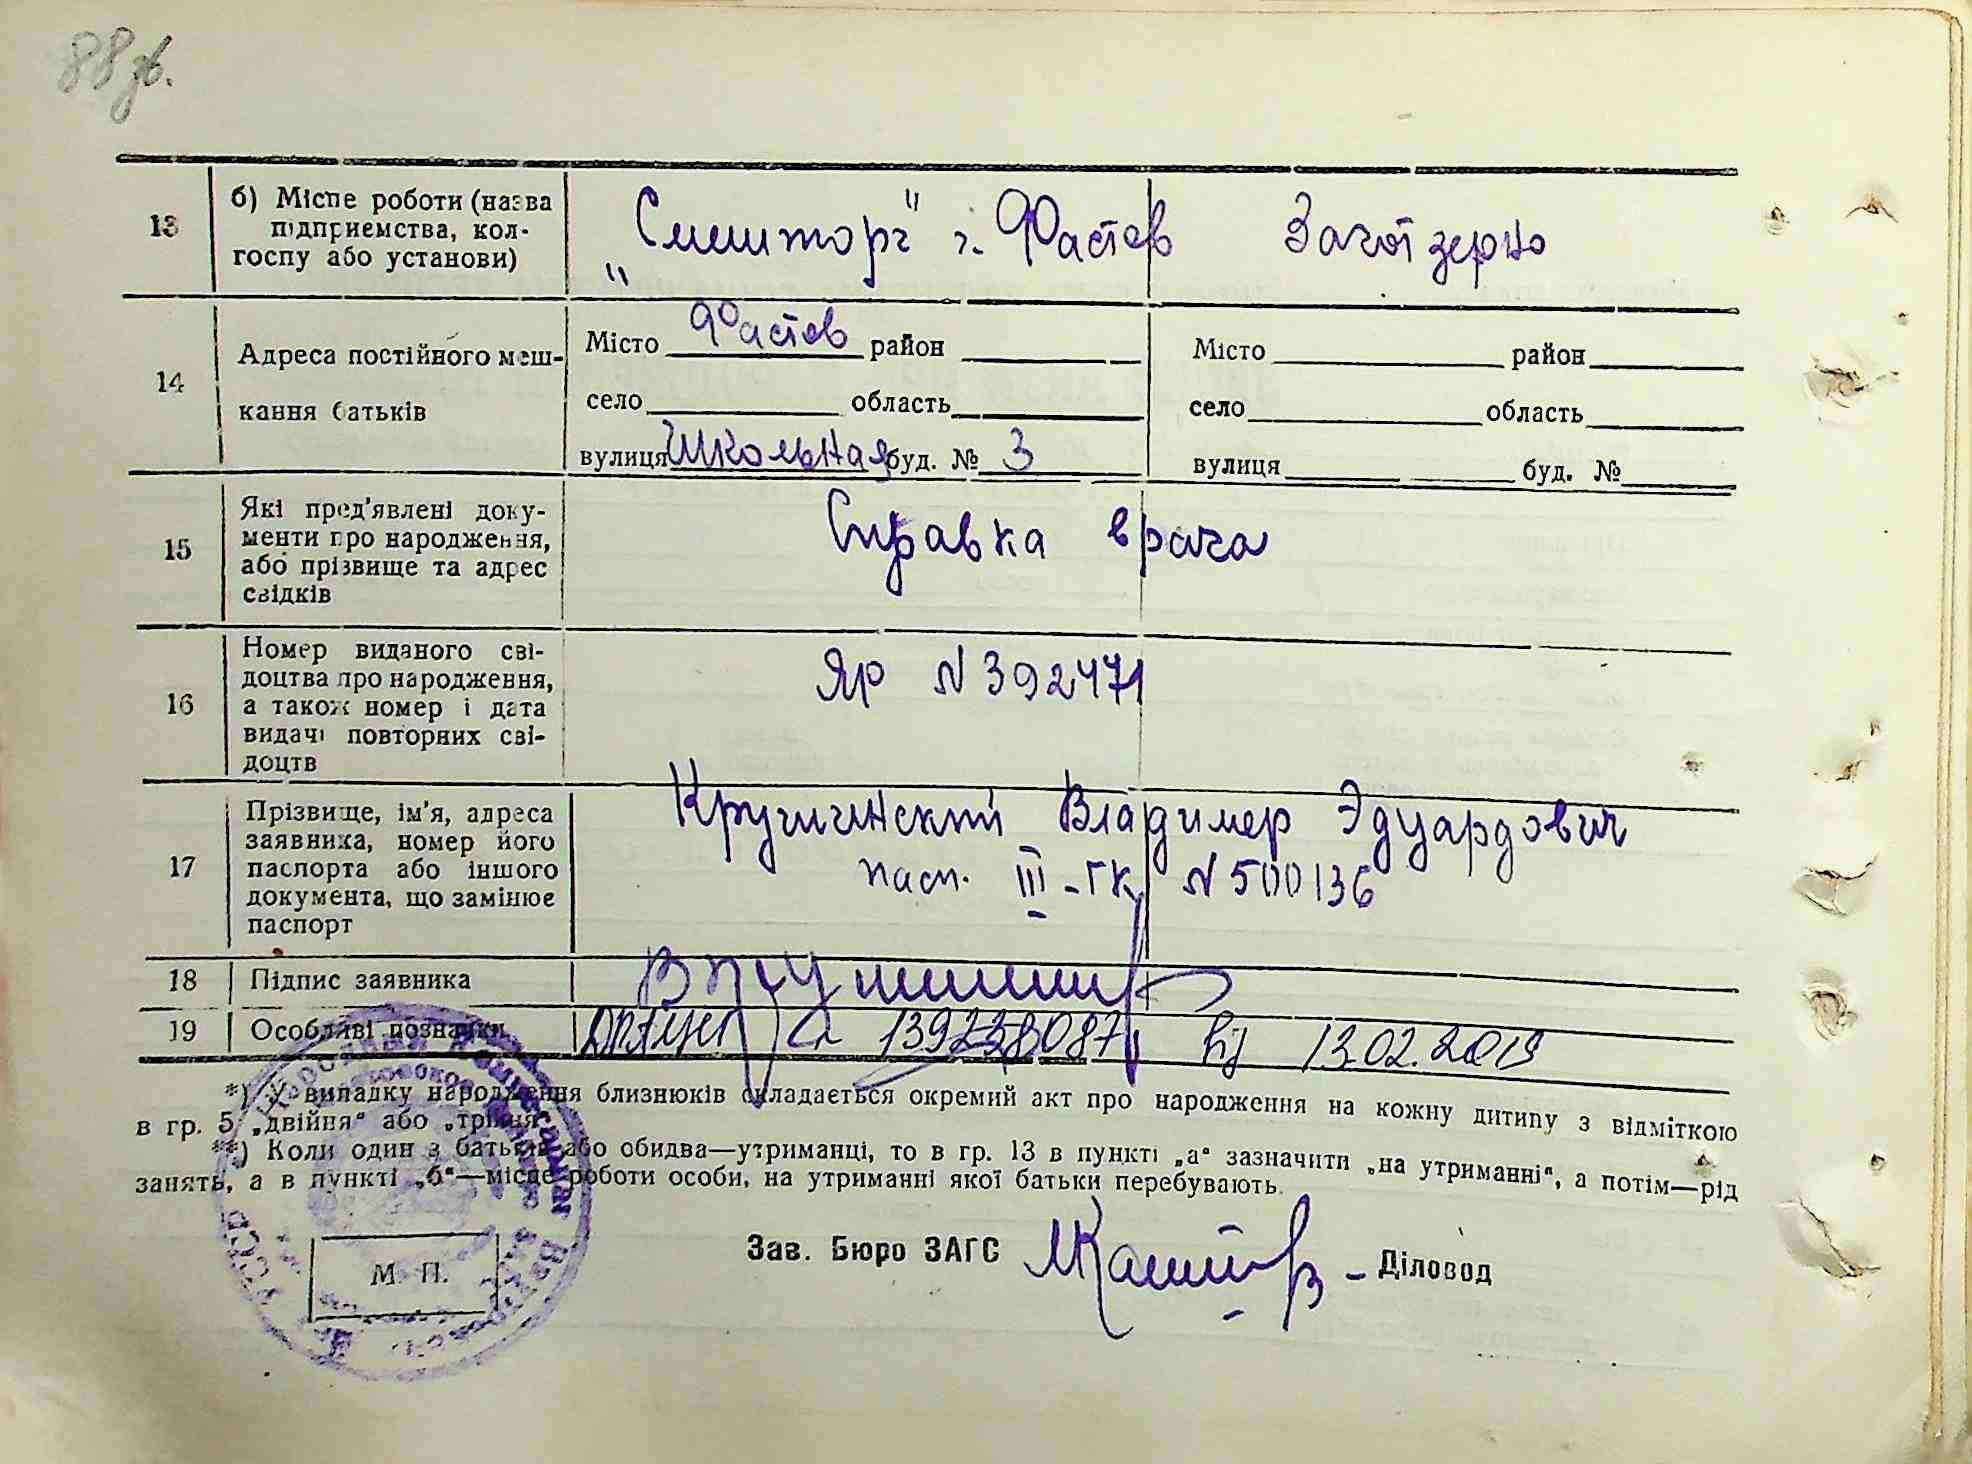 88 зв.
13 б) Місце роботи (назва підприємства, колгоспу або установи)
г. Фастов Заготзерно
14 Адреса постійного мешкання батьків
Місто Фастов район Місто район
село область село область
вулиця Школьная буд. № 3 вулиця буд. №
15 Які пред'явлені документи про народження, або прізвище та адрес свідків
Справка врача
16 Номер виданого свідоцтва про народження, а також номер і дата видачі повторних свідоцтв
ЯР N 392471
17 Прізвище, ім'я, адреса заявника, номер його паспорта або іншого документа, що замінює паспорт
Крушинский Владимер Эдуардович
пасп. III-ГК N 500136
18 Підпис заявника
19 Особливі позначки
від 13.02.2019
*) У випадку народження близнюків складається окремий акт про народження на кожну дитину з відміткою
в гр. 5 „двійня“ або „трійня“
**) Коли один з батьків або обидва—утриманці, то в гр. 13 в пункті „а“ зазначити „на утриманні“, а потім—рід
занять, а в пункті „б“—місце роботи особи, на утриманні якої батьки перебувають.
Зав. Бюро ЗАГС Діловод
М. П.
УССР